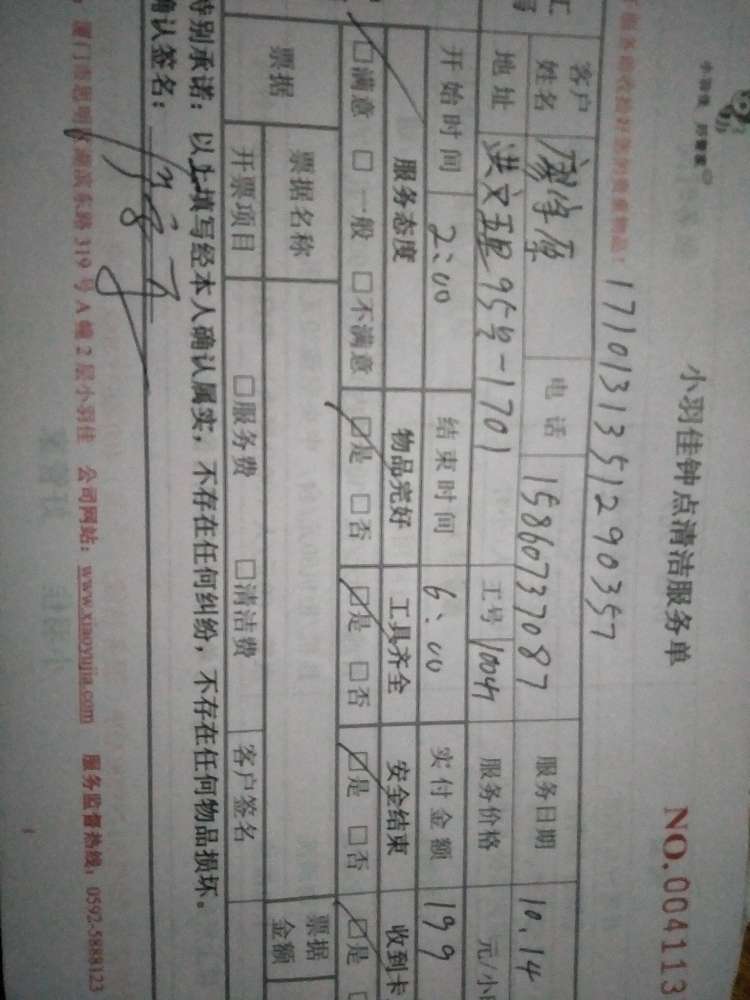 小羽佳钟点清洁服务单
NO.004113
小羽佳
171013135129035 7
客户姓名 电话 15860737087 服务日期 10.14
地址 洪文五里95号-1701 工号 10047 服务价格 元/小
开始时间 2:00 结束时间 6:00 实付金额 199
服务态度 物品完好 工具齐全 安全结束 收到卡
□满意 □一般 □不满意 □是 □否 □是 □否 □是 □否 □是
票据 票据名称 票据金额
开票项目 □服务费 □清洁费 客户签名
特别承诺：以上填写经本人确认属实，不存在任何纠纷，不存在任何物品损坏。
确认签名：
319号A幢2层小羽佳 公司网站：www.xiaoyujia.com 服务监督热线：0592-5888123